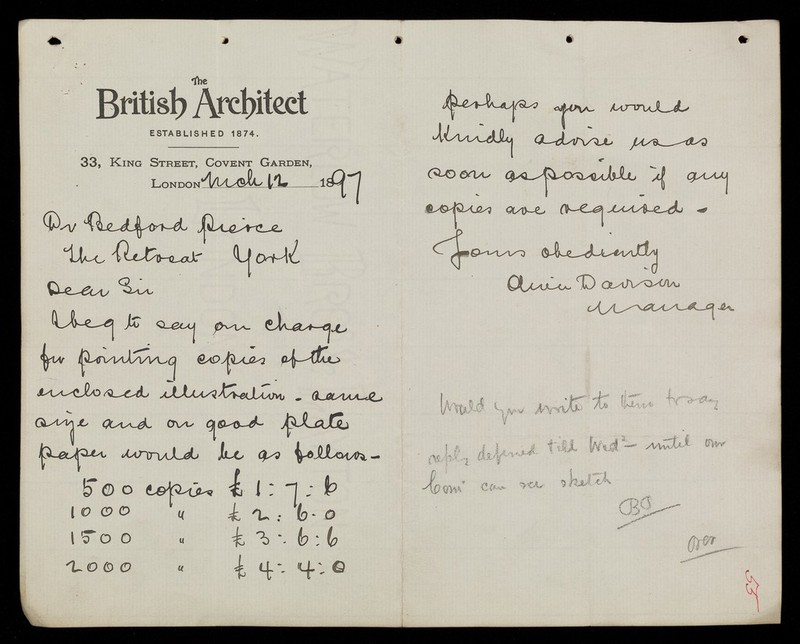 The
British Architect
ESTABLISHED 1874.
33, King Street, Covent Garden,
London March 12 1897
Dr Bedford Pierce
The Retreat York
Dear Sir
I beg to say our charge
for printing copies of the
enclosed illustration - same
size and on good plate
paper would be as follows -
500 copies £1:7:6
1000 " £2:6:0
1500 " £3:6:6
2000 " £4:4:0
Perhaps you would
kindly advise us as
soon as possible if any
copies are required -
Yours obediently
Davison
Manager
Would you write to them today
reply deferred till Wed - until our
Com can see sketch
BP
over
53